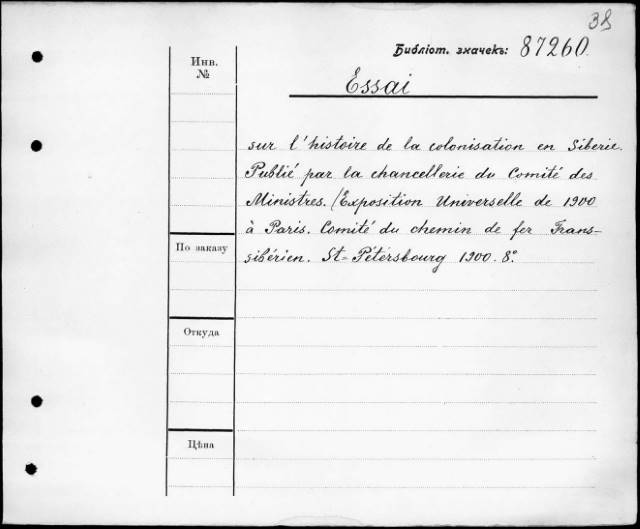 38
Библіот. значекъ: 87260
Инв.
№
Essai
sur l'histoire de la colonisation en Sibérie.
Publié par la chancellerie du Comité des
Ministres. (Exposition Universelle de 1900
à Paris. Comité du chemin de fer Trans-
sibérien. St-Pétersbourg 1900. 8º.
По заказу
Откуда
Цѣна